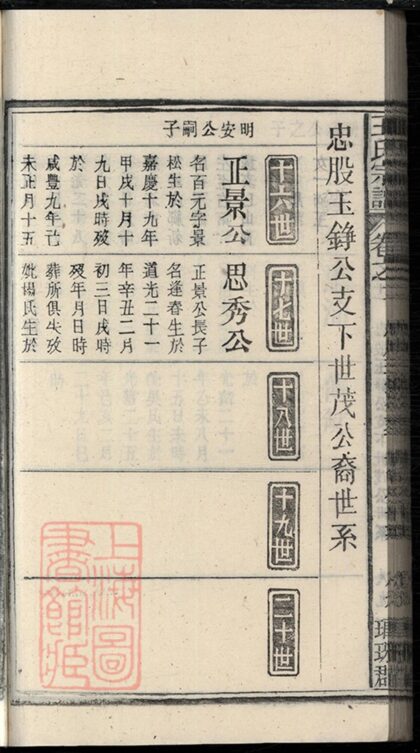 王氏宗譜
卷之
瑯琊郡
忠股玉錚公支下世茂公裔世系
十六世
十七世
十八世
十九世
二十世
明安公嗣子
正景公
名百元字景
松生於
嘉慶十九年
甲戌十月十
九日戌時歿
於
咸豐九年己
未正月十五
思秀公
正景公長子
名逢春生於
道光二十一
年辛丑二月
初三日戌時
歿年月日時
葬所俱失攷
妣楊氏生於
上海圖
書館藏